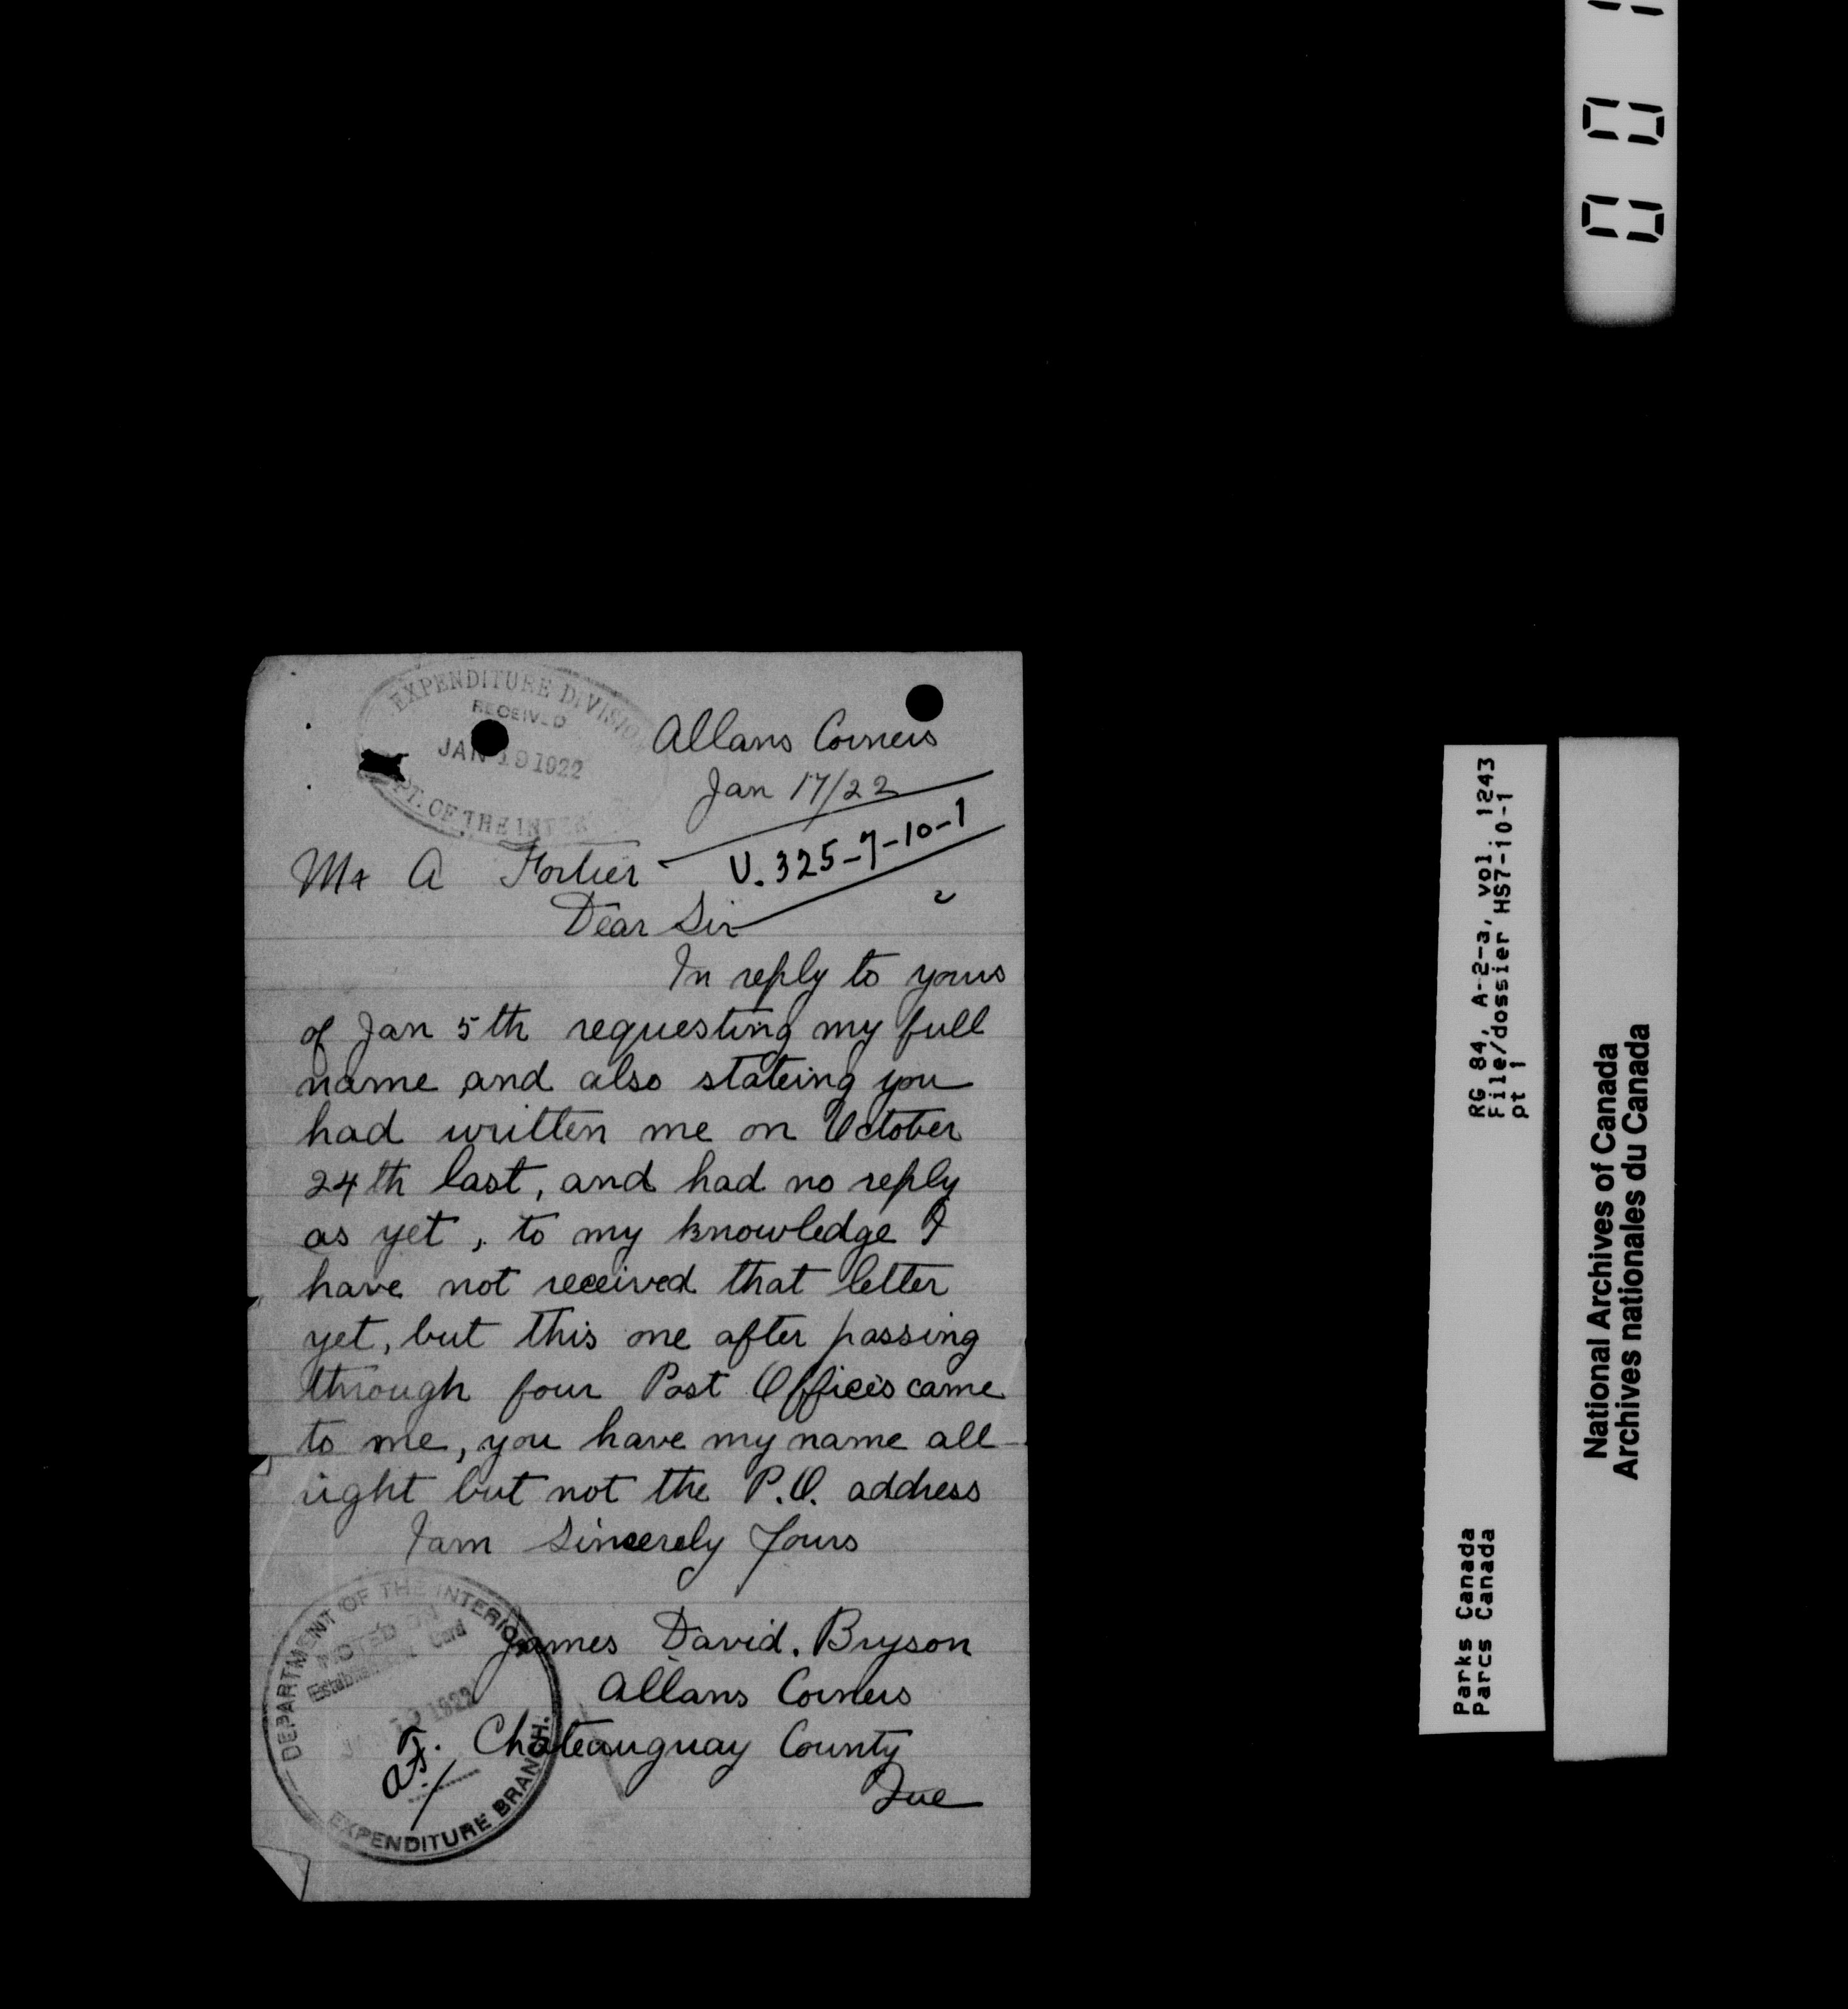 EXPENDITURE DIVISION
RECEIVED
JAN 19 1922
DEPT. OF THE INTER
Allans Corners
Jan 17/22
U.325-7-10-1
2
Mr A Fortier
Dear Sir
In reply to yours
of Jan 5th requesting my full
name and also stateing you
had written me on October
24th last, and had no reply
as yet, to my knowledge I
have not received that letter
yet, but this one after passing
through four Post Offices came
to me, you have my name all
right but not the P.O. address
I am Sincerely Yours
James David. Bryson
Allans Corners
Chateauguay County
Que
DEPARTMENT OF THE INTERIOR
NOTED ON
Establishment Card
JAN 19 1922
EXPENDITURE BRANCH.
RG 84, A-2-a, vol. 1243
File/dossier HS7-10-1
pt 1
Parks Canada
Parcs Canada
National Archives of Canada
Archives nationales du Canada